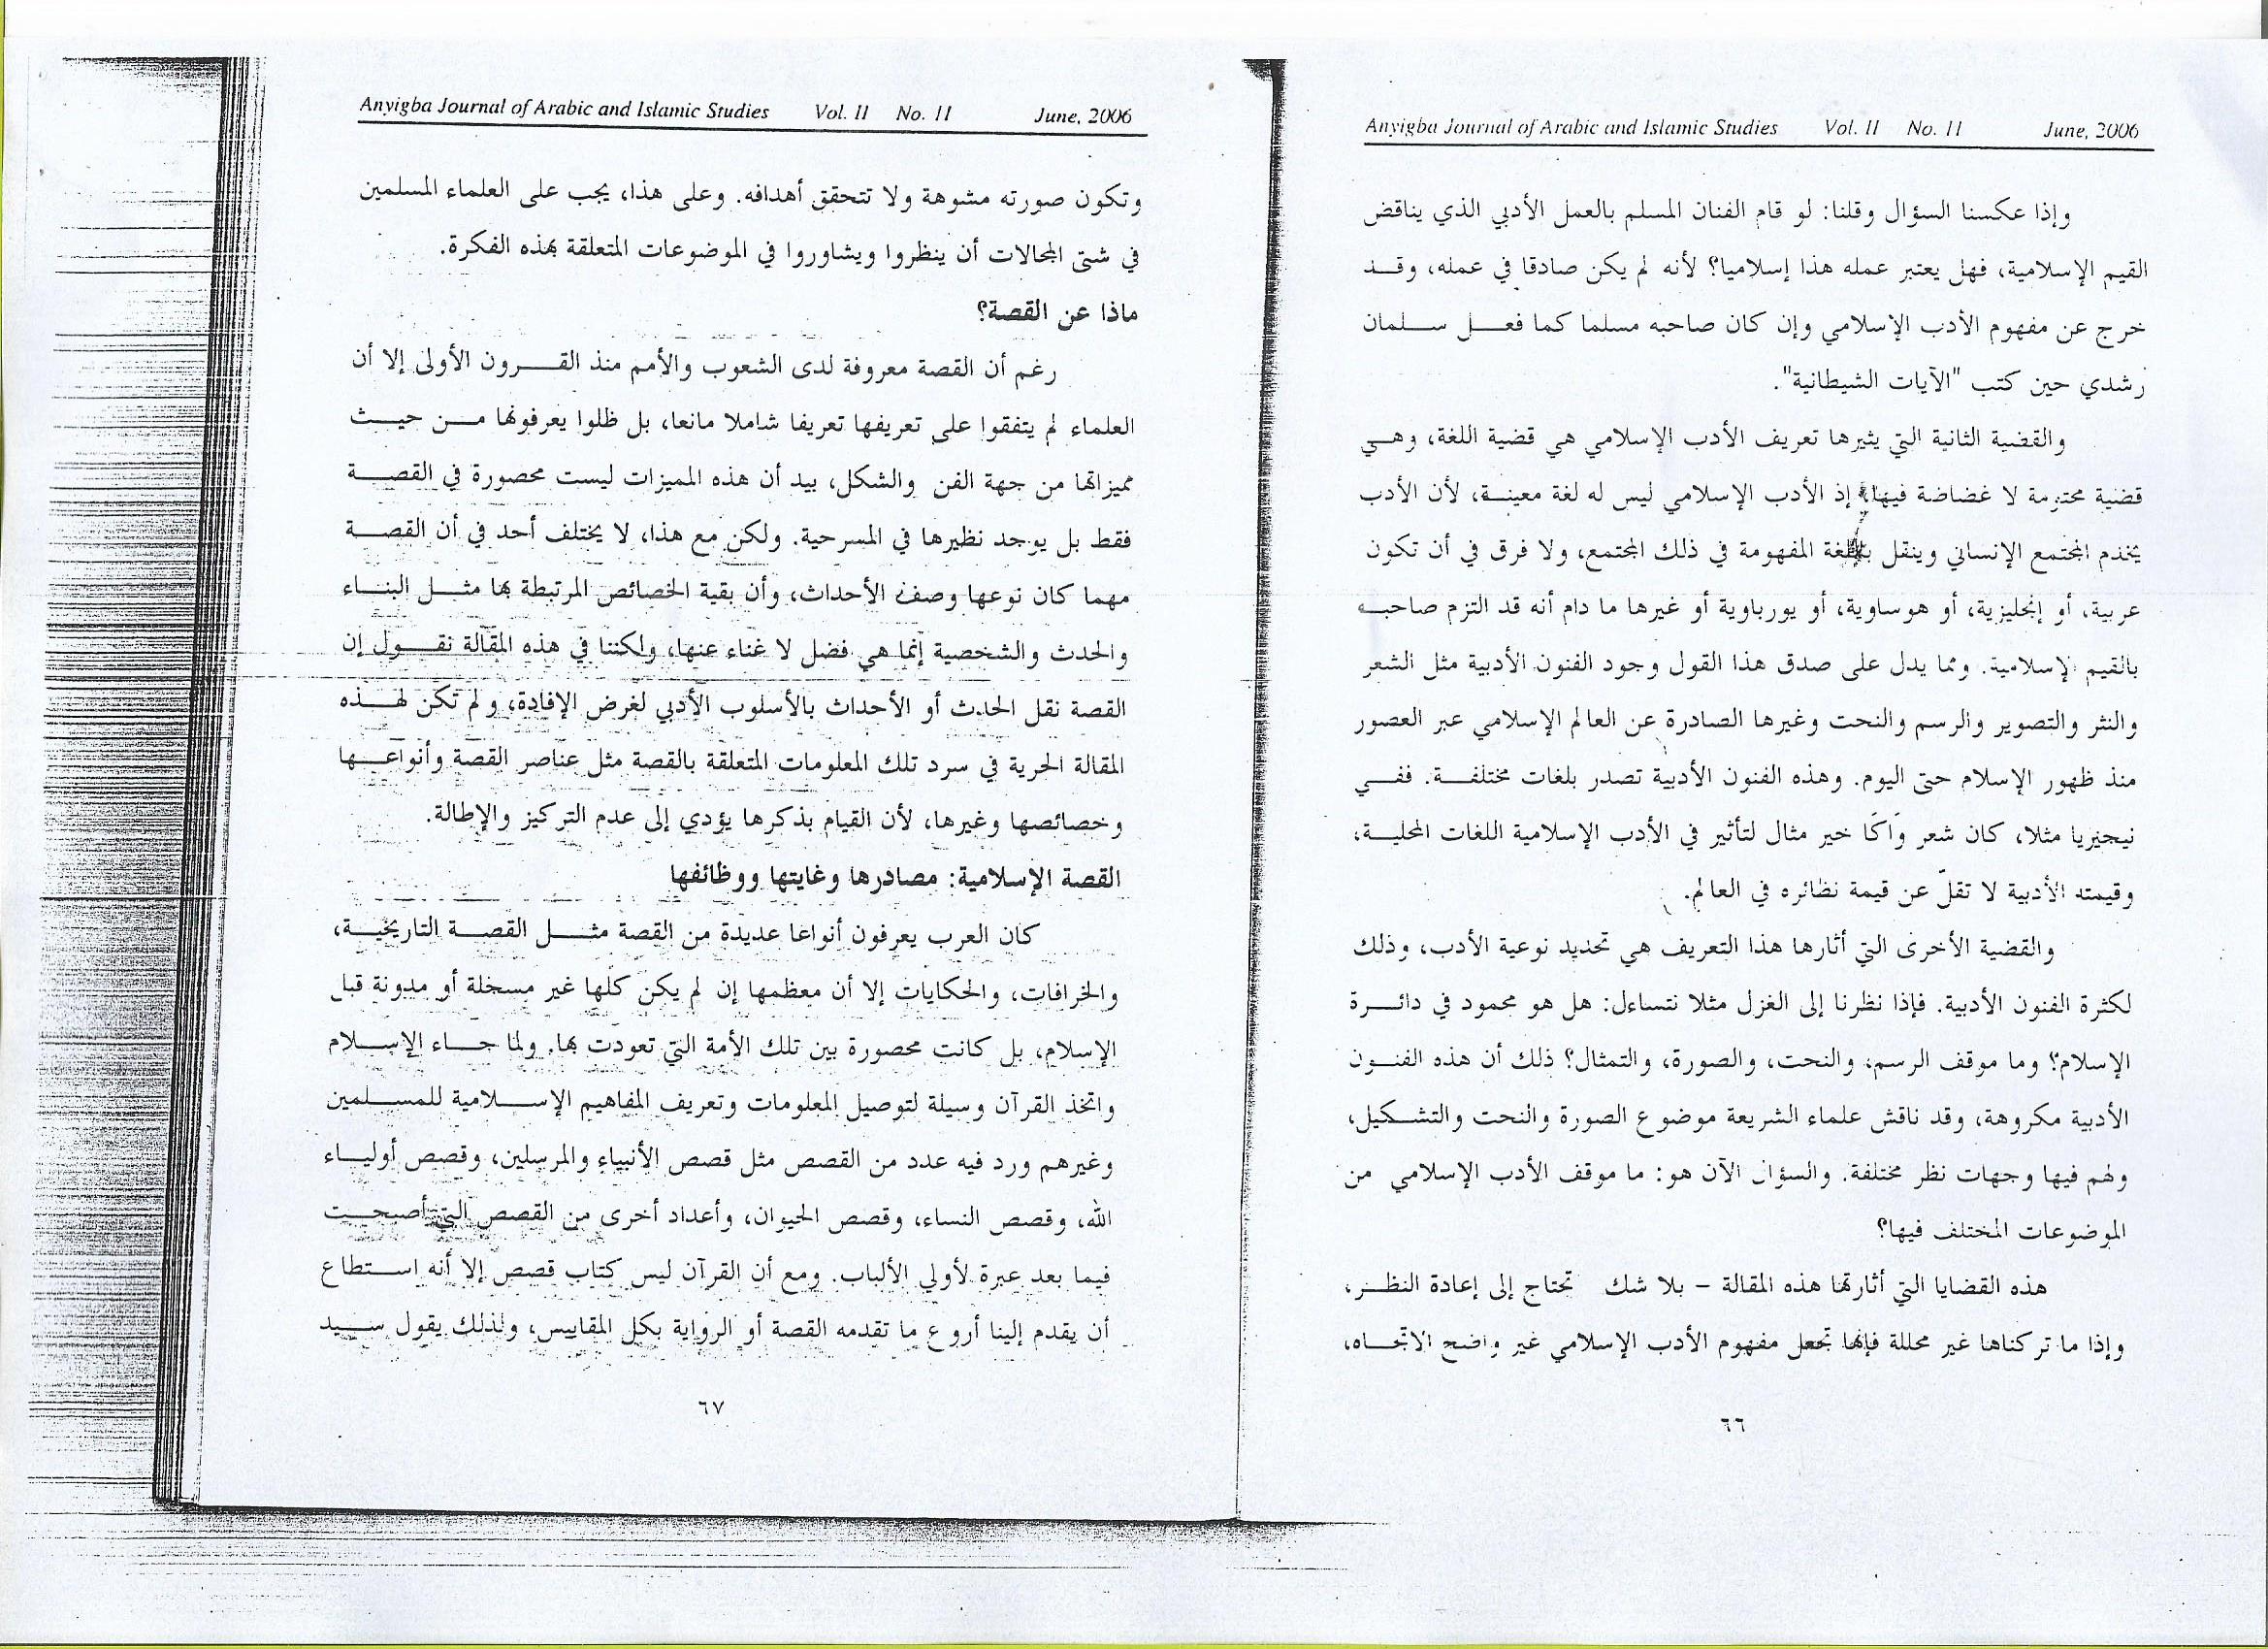 Anyigba Journal of Arabic and Islamic Studies Vol. II No. II June, 2006
وإذا عكسنا السؤال وقلنا: لو قام الفنان المسلم بالعمل الأدبي الذي يناقض
القيم الإسلامية، فهل يعتبر عمله هذا إسلاميا؟ لأنه لم يكن صادقا في عمله، وقد
خرج عن مفهوم الأدب الإسلامي وإن كان صاحبه مسلما كما فعل سلمان
رشدي حين كتب "الآيات الشيطانية".
والقضية الثانية التي يثيرها تعريف الأدب الإسلامي هي قضية اللغة، وهي
قضية محترمة لا غضاضة فيها، إذ الأدب الإسلامي ليس له لغة معينة، لأن الأدب
يخدم المجتمع الإنساني وينقل باللغة المفهومة في ذلك المجتمع، ولا فرق في أن تكون
عربية، أو إنجليزية، أو هوساوية، أو يورباوية أو غيرها ما دام أنه قد التزم صاحبه
بالقيم الإسلامية. ومما يدل على صدق هذا القول وجود الفنون الأدبية مثل الشعر
والنثر والتصوير والرسم والنحت وغيرها الصادرة عن العالم الإسلامي عبر العصور
منذ ظهور الإسلام حتى اليوم. وهذه الفنون الأدبية تصدر بلغات مختلفة. ففي
نيجيريا مثلا، كان شعر وَاكَا خير مثال لتأثير في الأدب الإسلامية اللغات المحلية،
وقيمته الأدبية لا تقلّ عن قيمة نظائره في العالم.
والقضية الأخرى التي أثارها هذا التعريف هي تحديد نوعية الأدب، وذلك
لكثرة الفنون الأدبية. فإذا نظرنا إلى الغزل مثلا نتساءل: هل هو محمود في دائرة
الإسلام؟ وما موقف الرسم، والنحت، والصورة، والتمثال؟ ذلك أن هذه الفنون
الأدبية مكروهة، وقد ناقش علماء الشريعة موضوع الصورة والنحت والتشكيل،
ولهم فيها وجهات نظر مختلفة. والسؤال الآن هو: ما موقف الأدب الإسلامي من
الموضوعات المختلف فيها؟
هذه القضايا التي أثارتها هذه المقالة – بلا شك تحتاج إلى إعادة النظر،
وإذا ما تركناها غير محللة فإنها تجعل مفهوم الأدب الإسلامي غير واضح الاتجاه،
٦٦
Anyigba Journal of Arabic and Islamic Studies Vol. II No. II June, 2006
وتكون صورته مشوهة ولا تتحقق أهدافه. وعلى هذا، يجب على العلماء المسلمين
في شتى المجالات أن ينظروا ويشاوروا في الموضوعات المتعلقة بهذه الفكرة.
ماذا عن القصة؟
رغم أن القصة معروفة لدى الشعوب والأمم منذ القرون الأولى إلا أن
العلماء لم يتفقوا على تعريفها تعريفا شاملا مانعا، بل ظلوا يعرفونها من حيث
مميزاتها من جهة الفن والشكل، بيد أن هذه المميزات ليست محصورة في القصة
فقط بل يوجد نظيرها في المسرحية. ولكن مع هذا، لا يختلف أحد في أن القصة
مهما كان نوعها وصف الأحداث، وأن بقية الخصائص المرتبطة بها مثل البناء
والحدث والشخصية إنما هي فضل لا غناء عنها، ولكننا في هذه المقالة نقول إن
القصة نقل الحدث أو الأحداث بالأسلوب الأدبي لغرض الإفادة، ولم تكن لهذه
المقالة الحرية في سرد تلك المعلومات المتعلقة بالقصة مثل عناصر القصة وأنواعها
وخصائصها وغيرها، لأن القيام بذكرها يؤدي إلى عدم التركيز والإطالة.
القصة الإسلامية: مصادرها وغايتها ووظائفها
كان العرب يعرفون أنواعا عديدة من القصة مثل القصة التاريخية،
والخرافات، والحكايات إلا أن معظمها إن لم يكن كلها غير مسجلة أو مدونة قبل
الإسلام، بل كانت محصورة بين تلك الأمة التي تعودت بها. ولما جاء الإسلام
واتخذ القرآن وسيلة لتوصيل المعلومات وتعريف المفاهيم الإسلامية للمسلمين
وغيرهم ورد فيه عدد من القصص مثل قصص الأنبياء والمرسلين، وقصص أولياء
الله، وقصص النساء، وقصص الحيوان، وأعداد أخرى من القصص التي أصبحت
فيما بعد عبرة لأولي الألباب. ومع أن القرآن ليس كتاب قصص إلا أنه استطاع
أن يقدم إلينا أروع ما تقدمه القصة أو الرواية بكل المقاييس، ولذلك يقول سيد
٦٧